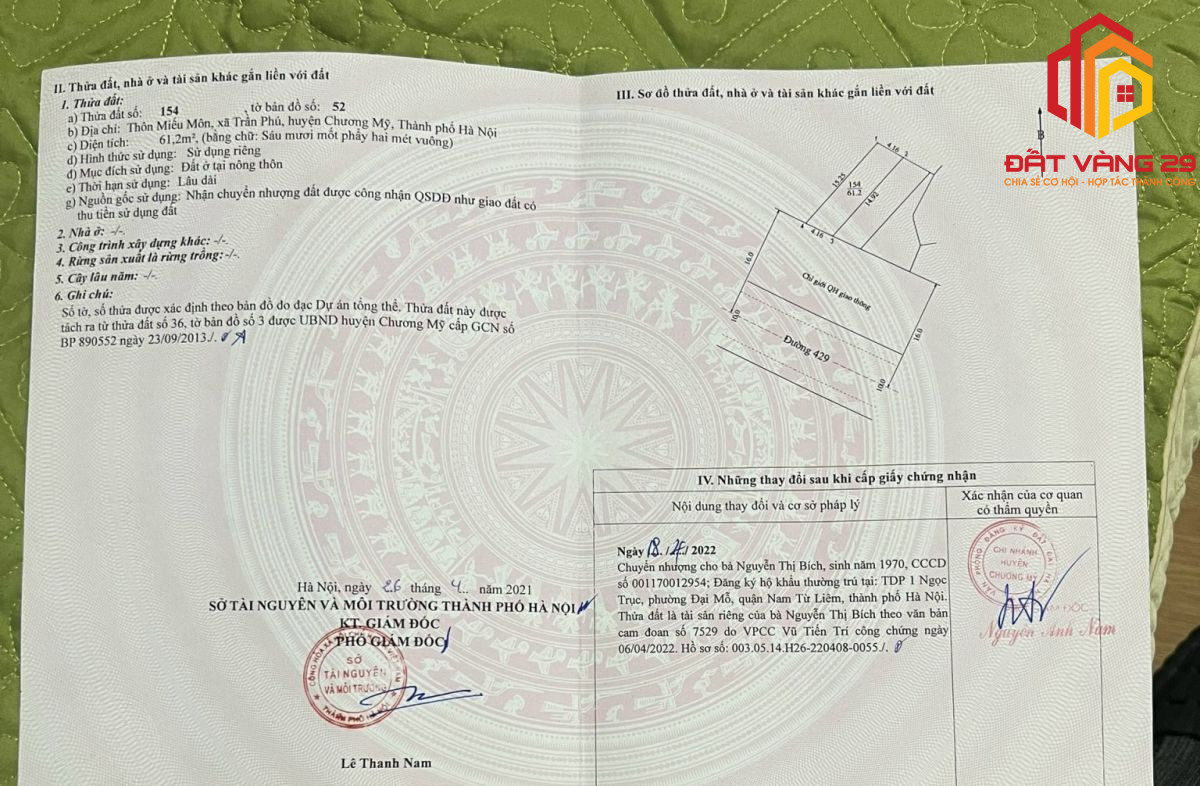 II. Thửa đất, nhà ở và tài sản khác gắn liền với đất
1. Thửa đất:
a) Thửa đất số: 154 , tờ bản đồ số: 52
b) Địa chỉ: Thôn Miếu Môn, xã Trần Phú, huyện Chương Mỹ, Thành phố Hà Nội
c) Diện tích: 61,2m², (bằng chữ: Sáu mươi mốt phẩy hai mét vuông)
d) Hình thức sử dụng: Sử dụng riêng
đ) Mục đích sử dụng: Đất ở tại nông thôn
e) Thời hạn sử dụng: Lâu dài
g) Nguồn gốc sử dụng: Nhận chuyển nhượng đất được công nhận QSDĐ như giao đất có
thu tiền sử dụng đất
2. Nhà ở: -/-.
3. Công trình xây dựng khác: -/-.
4. Rừng sản xuất là rừng trồng:-/-.
5. Cây lâu năm: -/-.
6. Ghi chú:
Số tờ, số thửa được xác định theo bản đồ đo đạc Dự án tổng thể. Thửa đất này được
tách ra từ thửa đất số 36, tờ bản đồ số 3 được UBND huyện Chương Mỹ cấp GCN số
BP 890552 ngày 23/09/2013./.
Hà Nội, ngày 26 tháng 4.. năm 2021
SỞ TÀI NGUYÊN VÀ MÔI TRƯỜNG THÀNH PHỐ HÀ NỘI
KT. GIÁM ĐỐC
PHÓ GIÁM ĐỐC
CỘNG HÒA XÃ HỘI CHỦ NGHĨA VIỆT NAM
SỞ
TÀI NGUYÊN
VÀ MÔI TRƯỜNG
THÀNH PHỐ HÀ NỘI
Lê Thanh Nam
III. Sơ đồ thửa đất, nhà ở và tài sản khác gắn liền với đất
B
ĐẤT VÀNG 29
CHIA SẺ CƠ HỘI - HỢP TÁC THÀNH CÔNG
1
4.16
2
15.25
154
61.2
14.92
4
4.16
3
16.0
Chỉ giới QH giao thông
16.0
10.0
Đường 429
10.0
IV. Những thay đổi sau khi cấp giấy chứng nhận
Nội dung thay đổi và cơ sở pháp lý
Xác nhận của cơ quan
có thẩm quyền
Ngày 18./.4./ 2022
Chuyển nhượng cho bà Nguyễn Thị Bích, sinh năm 1970, CCCD
số 001170012954; Đăng ký hộ khẩu thường trú tại: TDP 1 Ngọc
Trục, phường Đại Mỗ, quận Nam Từ Liêm, thành phố Hà Nội.
Thửa đất là tài sản riêng của bà Nguyễn Thị Bích theo văn bản
cam đoan số 7529 do VPCC Vũ Tiến Trí công chứng ngày
06/04/2022. Hồ sơ số: 003.05.14.H26-220408-0055./.
VĂN PHÒNG ĐĂNG KÝ ĐẤT ĐAI HÀ NỘI
CHI NHÁNH
HUYỆN
CHƯƠNG MỸ
GIÁM ĐỐC
Nguyễn Anh Nam